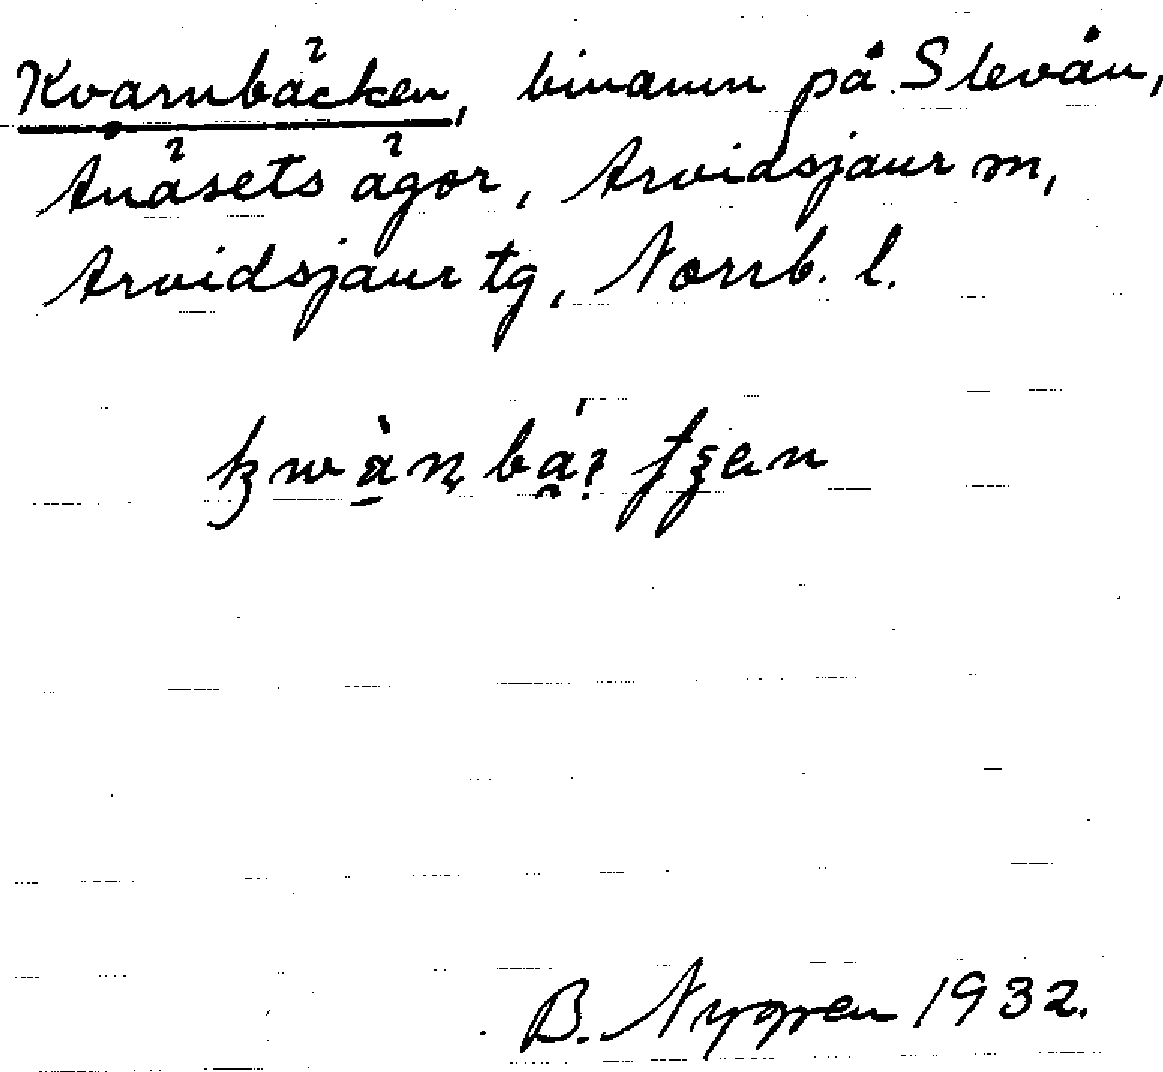 Kvarnbäcken, binamn på Slevån,
Anäsets ägor, Arvidsjaur m,
Arvidsjaur tg, Norrb. l.
B. Nygren 1932.